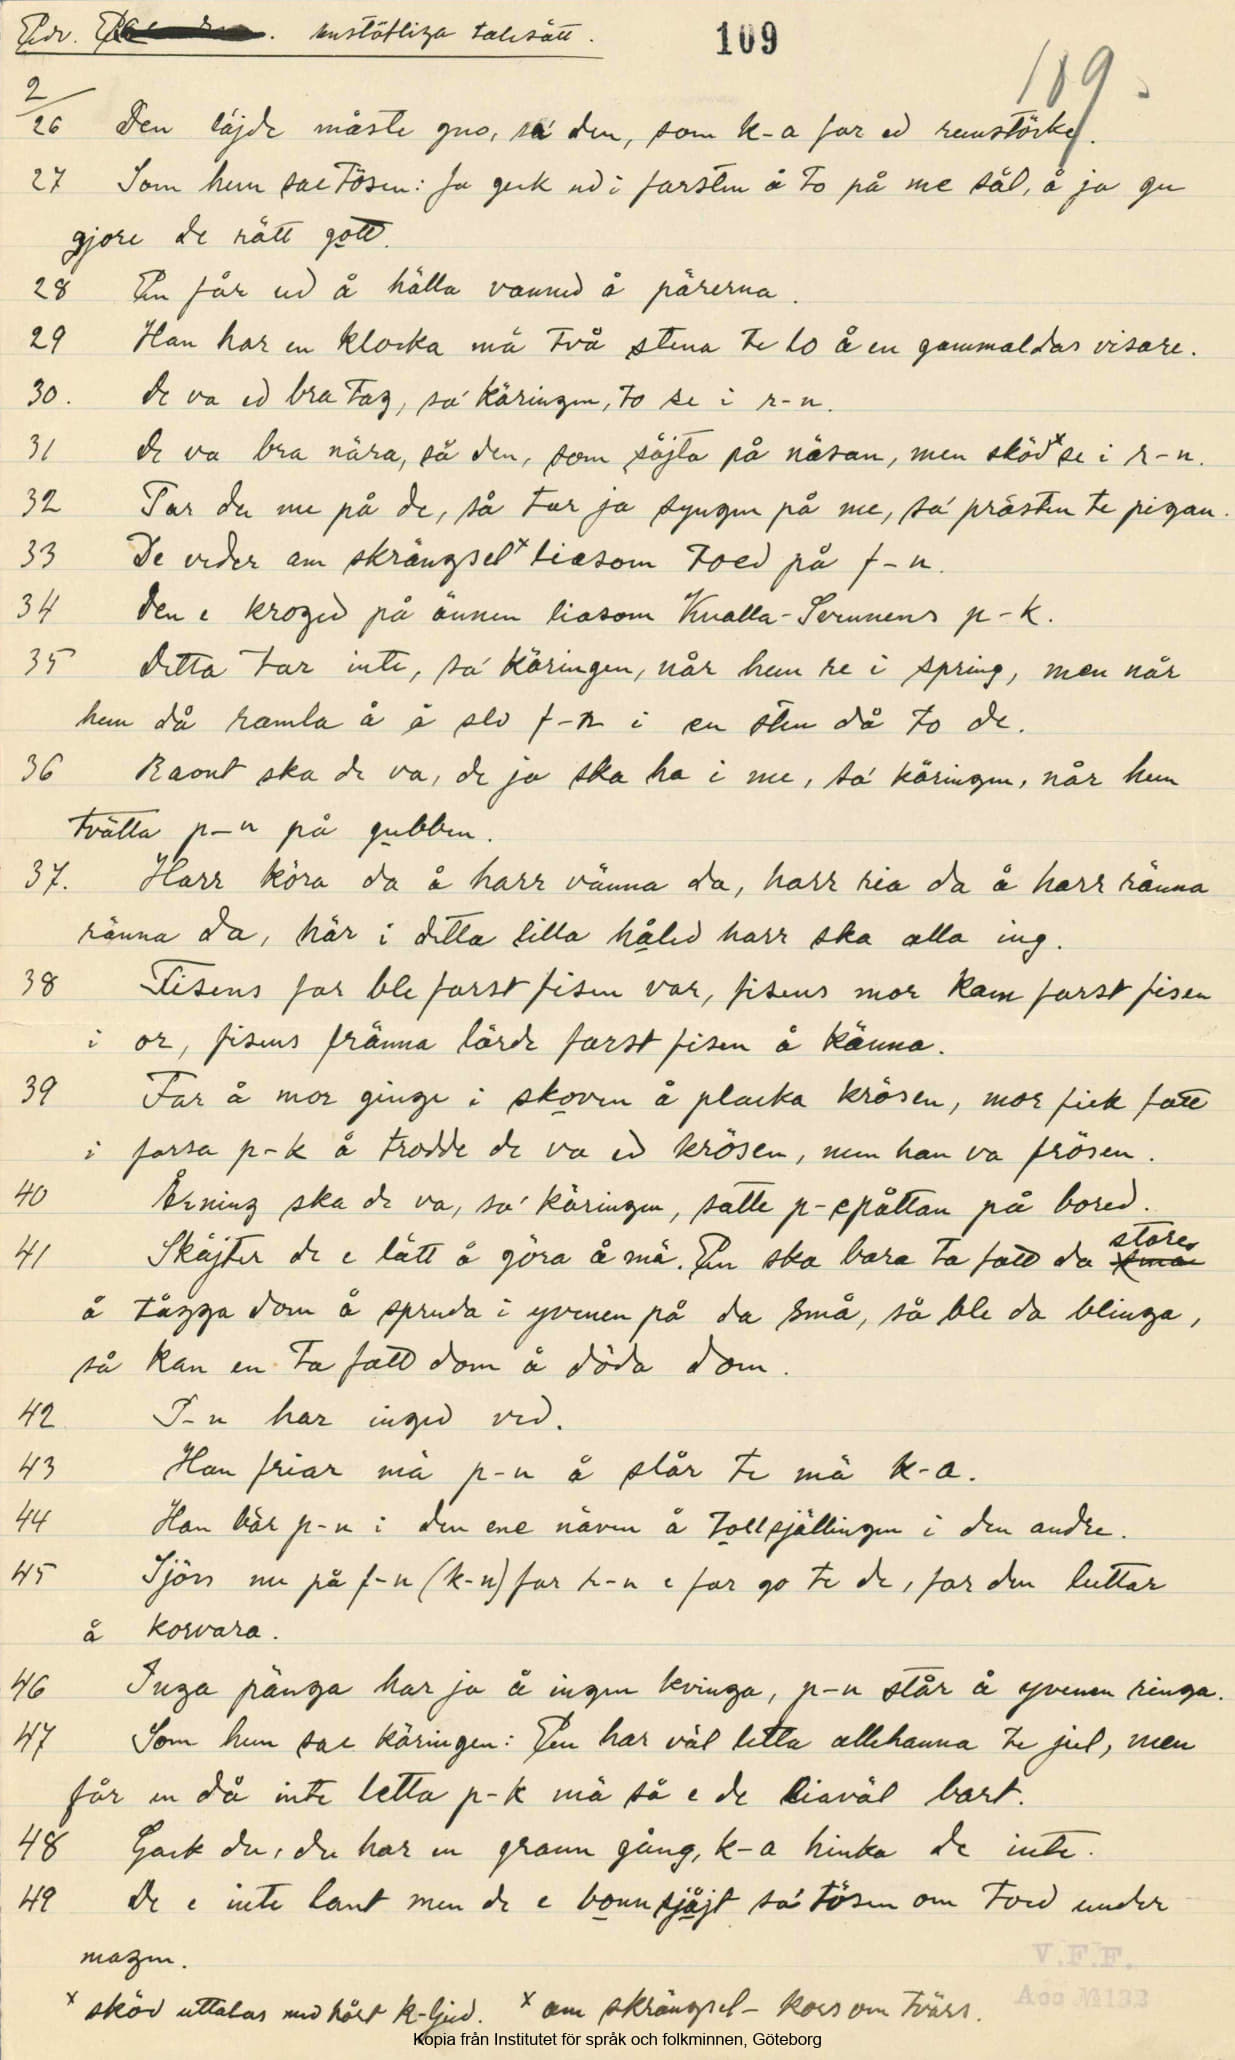 Edv. anstötliga talesätt.
109
109.
2
26 Den läjde måste gno, sa' den, som k-a for ed remstöcke.
27 Som hun sae tösen: Ja geck ud i farsten å to på me säl, å ja gu
gjore de rätt gott.
28 En får ud å hålla vanned å pärerna.
29 Han har en klocka mä två stena te lo å en gammaldas visare.
30. De va ed bra tag, sa' käringen, to se i r-n.
31 De va bra nära, så den, som säjta på näsan, men sköd x se i r-n.
32 Tar du me på de, så tar ja syngen på me, sa' prästen te pigan.
33 De veder am skrängsel x liasom toed på f-n.
34 Den e kroged på ännen liasom Knalla-Svennens p-k.
35 Detta tar inte, sa' käringen, når hun re i spring, men når
hun då ramla å å slo f-n i en sten då to de.
36 Raont ska de va, de ja ska ha i me, sa' käringen, når hun
tvätta p-n på gubben.
37. Harr köra da å harr vänna da, harr ria da å harr ränna
ränna da, här i detta lilla håled harr ska alla ing.
38 Fisens far ble farst fisen var, fisens mor kam farst fisen
i or, fisens fränna lärde farst fisen å känna.
39 Far å mor ginge i skoven å placka krösen, mor fick fatt
i farsa p-k å trodde de va ed krösen, men han va frösen.
40 Årning ska de va, sa' käringen, satte p-epåttan på bored.
41 Skäjter de e lätt å göra å mä. En ska bara ta fatt da store
å tågga dom å spruda i yvenen på da små, så ble da blinga,
så kan en ta fatt dom å döda dom.
42 P-n har inged ved.
43 Han friar mä p-n å slår te mä k-a.
44 Han bär p-n i den ene näven å tollsjällingen i den andre.
45 Sjörs nu på f-n (k-n) far h-n e far go te de, far den luttar
å korvara.
46 Inga pänga har ja å ingen kvinga, p-n står å yvenen ringa.
47 Som hun sae käringen: En har väl letta allehanna te jul, men
får en då inte letta p-k mä så e de liaväl bart.
48 Gack du, du har en grann gång, k-a hinka de inte.
49 De e inte lant men de e bonnsjåjt sa' tösen om toed under
magen.
x sköd uttalas med hårt k-ljud. x am skrängsel - kors om tvärs.
V.F.F.
Acc № 133
Kopia från Institutet för språk och folkminnen, Göteborg